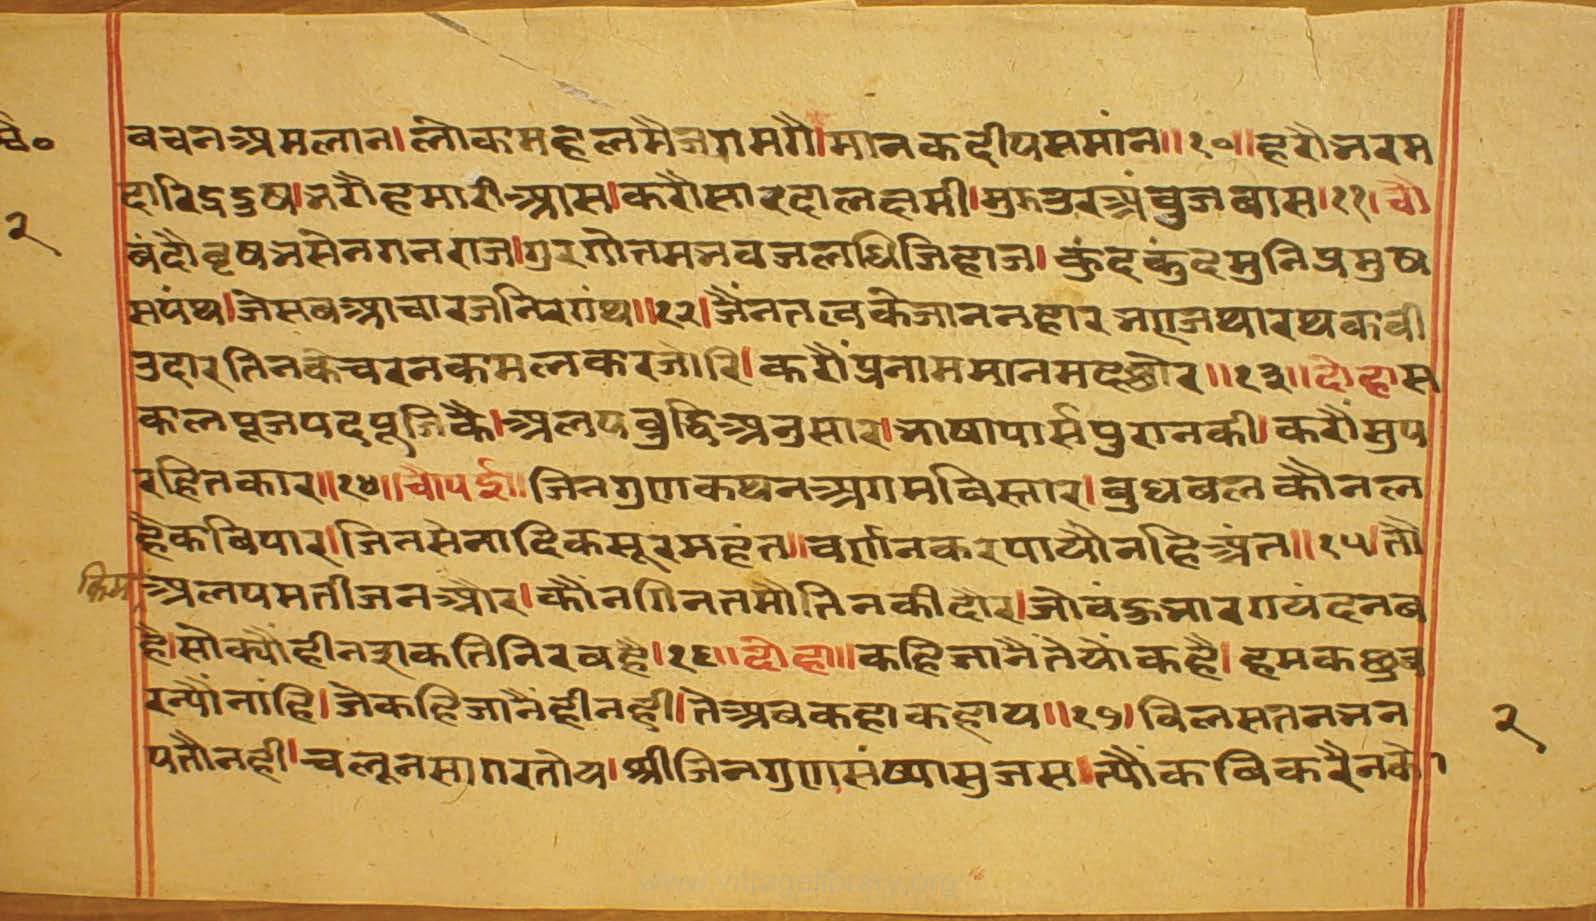 बचनअमलान।लोकमहलमैजगमगौ।मानकदीपसमांन॥१०॥हरौभरम
दारिद्रदुष।भरौहमारीआस।करौसारदालछमी।मुझउरअंबुजबास।११।चौ
बंदौवृषभसेनगनराज।गुरगोतमभवजलधिजिहाज।कुंदकुंदमुनिप्रमुष
सपंथ।जेसबआचारजनिरगंथ॥१२।जैंनतत्वकेजाननहारभएजथारथकवी
उदारतिनकेचरनकमलकरजोरि।करौंप्रनाममानमदछोर॥१३॥दोहास
कलपूजपदपूजिकै।अलपबुद्धिअनुसार।भाषापार्सपुरानकी।करौंसुप
रहितकार॥१४॥चौपई॥जिनगुणकथनअगमबिस्तार।बुधबलकौनल
हैकबिपार।जिनसेनादिकसूरमहंत॥वर्णनकरपायौनहिअंत॥१५।तौ
किम
अलपमतीजनऔर।कौंनगिनतमौतिनकीदौर।जोबंङभारगयंदनब
है।सोक्यौंहीनशकतिनिरबहै।१६॥दोहा॥कहिजानैतेयोंकहै।हमकछुव
रन्यौंनांहि।जेकहिजानैंहीनही।तेअबकहाकहाय॥१७।विलसतनभन
पतौनही।चलूनसागरतोय।श्रीजिनगुणसंष्यासुजस।त्यौंकबिकरैनको
२
२